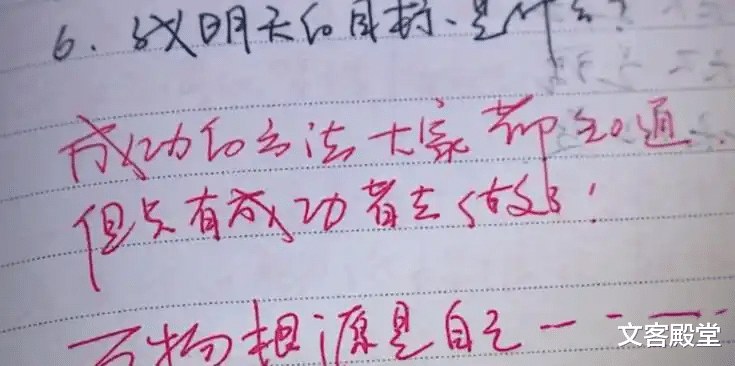 6、我明天的目标是什么？
成功的方法大家都知道
但只有成功者去做了！
万物根源是自己一 - 一 -
文客殿堂